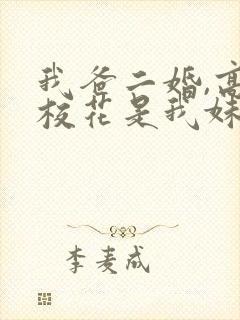 我爸二婚,高
校花是我妹
李麦成